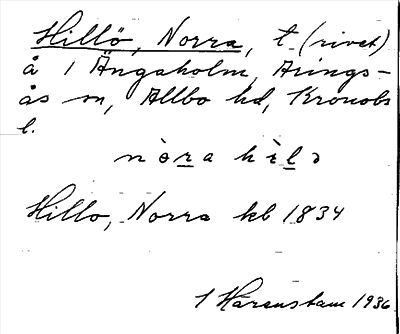 Hillö, Norra, t. (rivet)
å 1 Ängaholm, Arings-
ås sn, Allbo hd, Kronobs
l.
nò̱ra hìḻə
Hillo, Norra kb 1834
1 Härenstam 1936